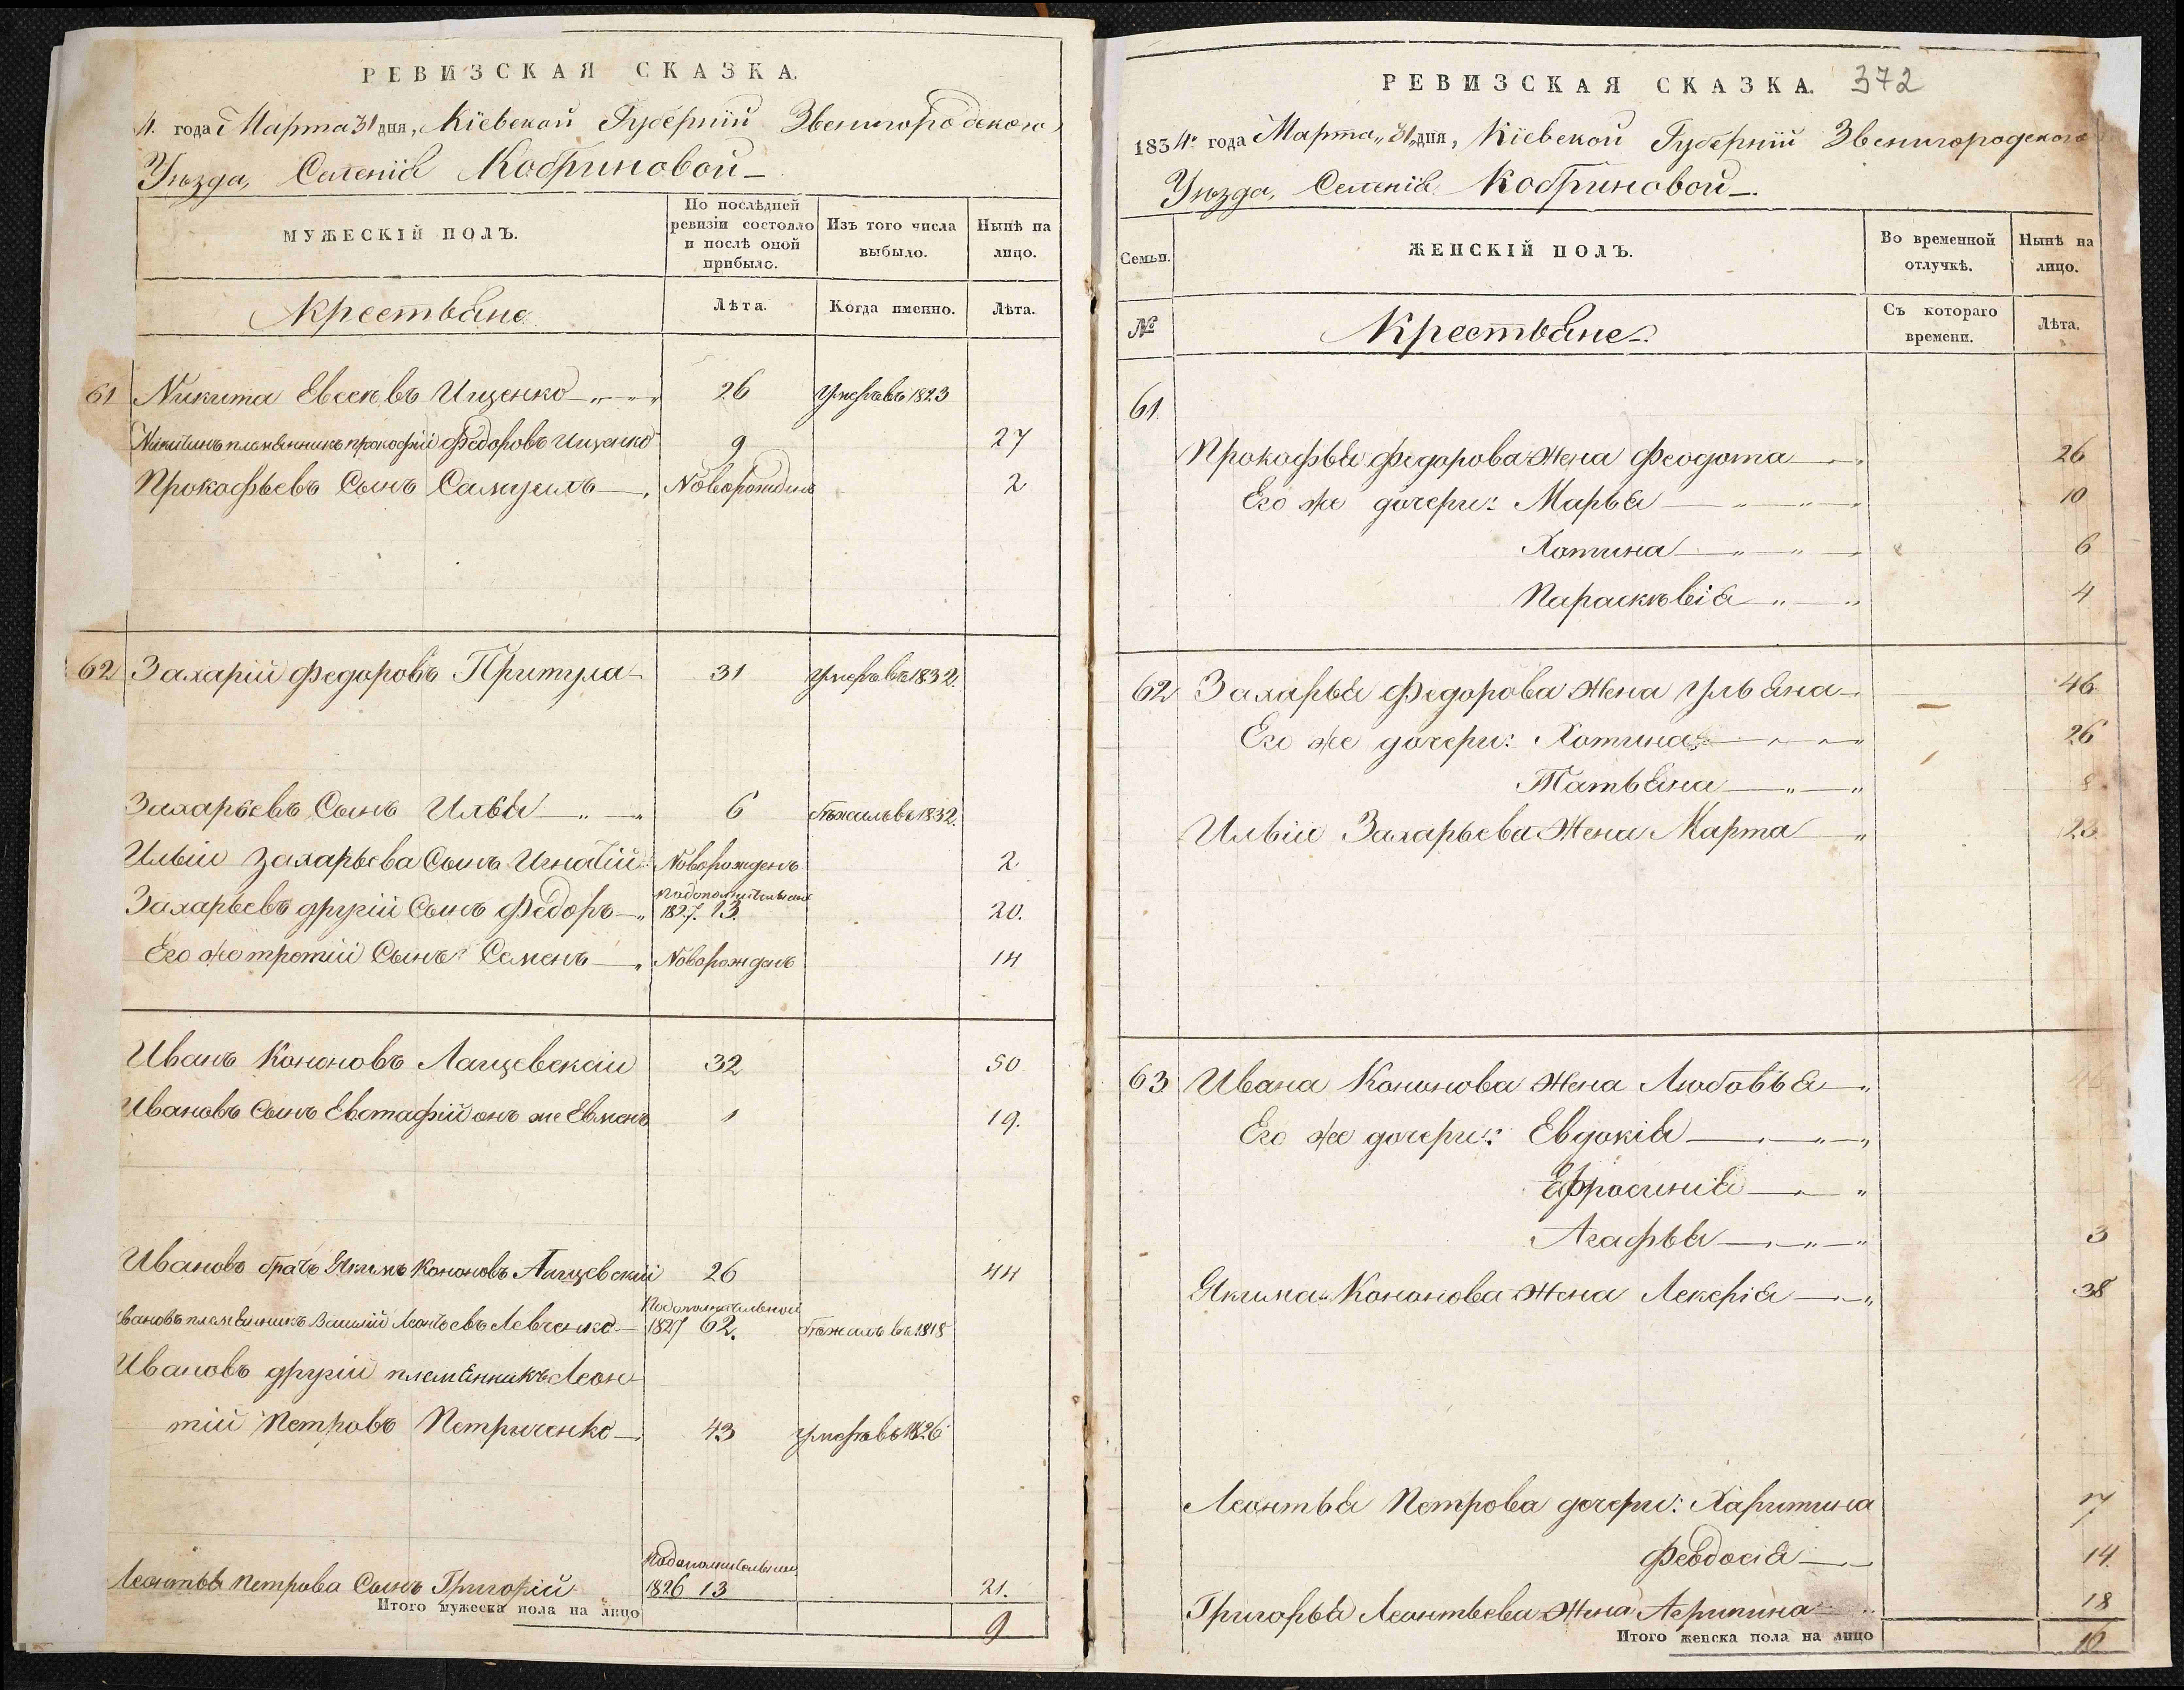 РЕВИЗСКАЯ СКАЗКА.
4. года Марта 31 дня, Кіевской Губерніи Звенигородского
Уѣзда, Селенія Кобриновой
МУЖЕСКІЙ ПОЛЪ.
По послѣдней ревизіи состояло и послѣ оной прибыло.
Изъ того числа выбыло.
Нынѣ на лицо.
Крестьяне
Лѣта.
Когда именно.
Лѣта.
61 Никита Евсеевъ Ищенко 26 Умеръ въ 1823
Никитинъ племянникъ прокофій Федоровъ Ищенко 9 27
Прокофьевъ Сынъ Самуилъ Новорожденъ 2
62 Захарій Федоровъ Притула 31 Умеръ въ 1832.
Захарьевъ Сынъ Илья 6 бѣжалъ въ 1832.
Ильи Захарьева Сынъ Игнатій Новорожденъ 2
Захарьевъ другій Сынъ Федоръ 1827. 13. 20.
Его же третій Сынъ Семенъ Новорожденъ 14
Иванъ Кононовъ Лащевскій 32 50
Ивановъ Сынъ Евстафій онъ же Евменъ 1 19.
Ивановъ братъ Якимъ Кононовъ Лащевскій 26 44
вановъ племянникъ Василій Леонтьевъ Левченко 1827 62. бѣжалъ въ 1818
Ивановъ другій племянникъ Леон-
тій Петровъ Петриченко 43 умеръ въ 1826
Леонтья Петрова Сынъ Григорій 1826 13 21.
Итого мужеска пола на лицо 9
РЕВИЗСКАЯ СКАЗКА. 372
1834. года Марта 31 дня, Кіевской Губерніи Звенигородского
Уѣзда, Селенія Кобриновой
Семьи.
ЖЕНСКІЙ ПОЛЪ.
Во временной отлучкѣ.
Нынѣ на лицо.
№
Крестьяне
Съ котораго времени.
Лѣта.
61.
Прокофья Федорова жена Феодота 26
Его же дочери: Марья 10
Хотина 6
Парасковія 4
62 Захарья Федорова жена Ульяна 46
Его же дочери: Хотина 26
Татьяна 8
Ильи Захарьева Жена Марта 23
63 Ивана Кононова жена Любовья
Его же дочери: Евдокія
Ефросинія
Агафья 3
Якима Кононова жена Лекерія 38
Леонтья Петрова дочери: Харитина 17
Феодосія 14
Григорья Леонтьева жена Агрипина 18
Итого женска пола на лицо 16